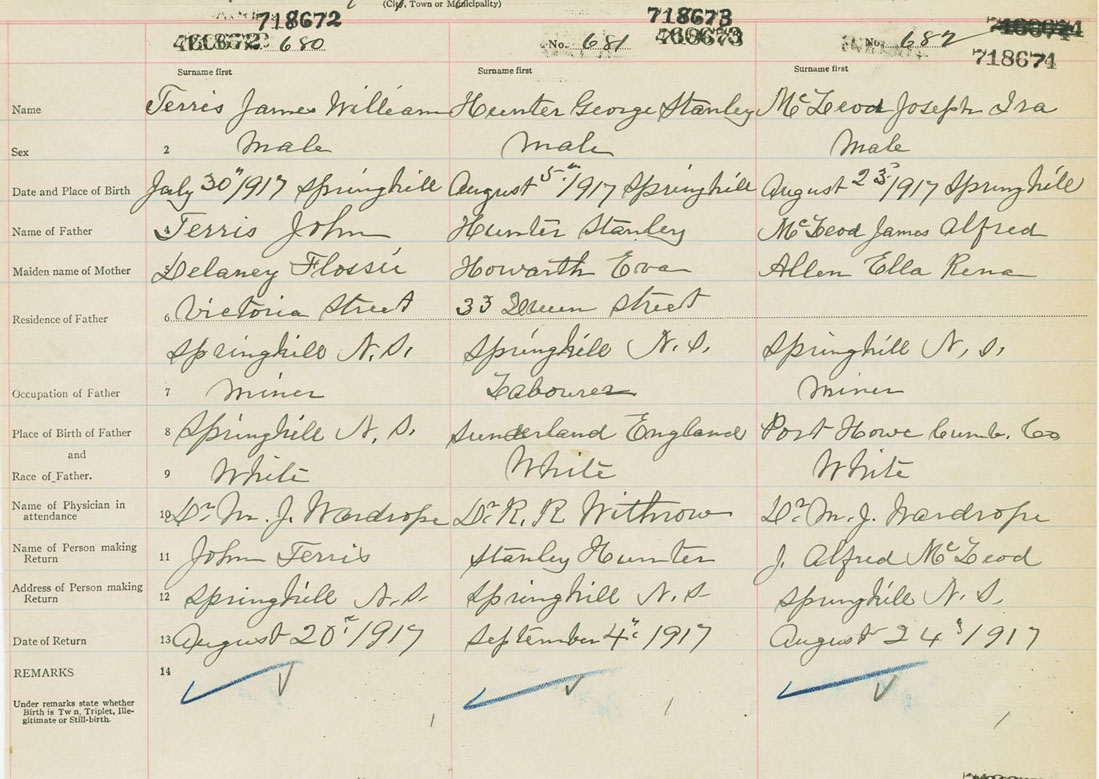 (City, Town or Municipality)
718672 718673
460672 680 No. 681 460673 No. 682 460674
718674
Surname first Surname first Surname first
Name Terris James William Hunter George Stanley McLeod Joseph Ira
Sex 2 Male Male Male
Date and Place of Birth July 30"/1917 Springhill August 5th/1917 Springhill August 23/1917 Springhill
Name of Father 4 Terris John Hunter Stanley McLeod James Alfred
Maiden name of Mother 5 Delaney Flossie Howarth Eva Allen Ella Rena
Residence of Father 6 Victoria Street 33 Queen Street
Springhill N.S. Springhill N.S. Springhill N.S.
Occupation of Father 7 Miner Labourer Miner
Place of Birth of Father 8 Springhill N.S. Sunderland England Port Howe Cumb. Co
and
Race of Father. 9 White White White
Name of Physician in
attendance 10 Dr. M. J. Wardrope Dr. R. R Withrow Dr. M. J. Wardrope
Name of Person making
Return 11 John Terris Stanley Hunter J. Alfred McLeod
Address of Person making
Return 12 Springhill N.S. Springhill N.S Springhill N.S.
Date of Return 13 August 20/1917 September 4/1917 August 24/1917
REMARKS 14
Under remarks state whether
Birth is Tw n, Triplet, Ille-
gitimate or Still-birth.